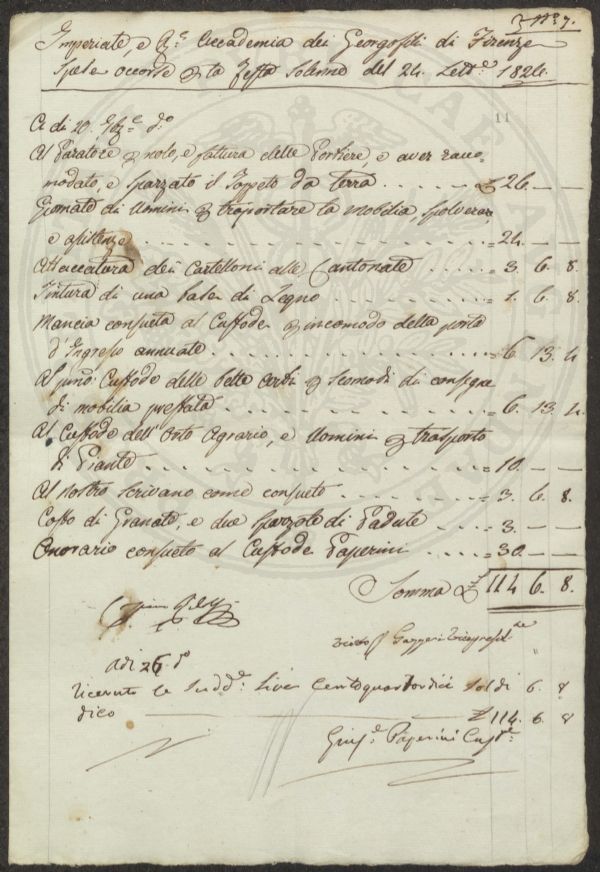 N.° 7.
Imperiale, e R.e Accademia dei Georgofili di Firenze
Spese occorse la Festa Solenne del 24. Sett.e 1826.
11
A di 20. d.o
Al Paratore nolo, e fattura delle Portiere, e aver racco,
modato, e spazzato il Tappeto da terra . . . . . . £ 26. — —
Giornate di Uomini trasportare la mobilia, spolverare
e assistenze . . . . . . = 24. — —
Attaccatura dei Cartelloni alle Cantonate . . . . = 3. 6. 8.
Tintura di una base di Legno . . . . = 1. 6. 8.
Mancia consueta al Custode incomodo della porta
d'Ingresso annuale . . . . . . = 6. 13. 4
Al Custode delle belle Arti Scomodi di consegna
di mobilia prestata . . . . . . = 6. 13. 4.
Al Custode dell'Orto Agrario, e Uomini trasporto
di Piante . . . . . . = 10. — —
Al nostro Scrivano come consueto . . . . = 3. 6. 8.
Costo di Granate, e due spazzole di Padule . . . . = 3. — —
Onorario consueto al Custode Paperini . . . . = 30. — —
Somma £ 114 6. 8.
Visto Gazzeri
Adi 26 d.o
Ricevuto le Sudd.e Lire Centoquattordici Soldi 6. 8
dico — £ 114. 6. 8
Gius.e Paperini Cust.e